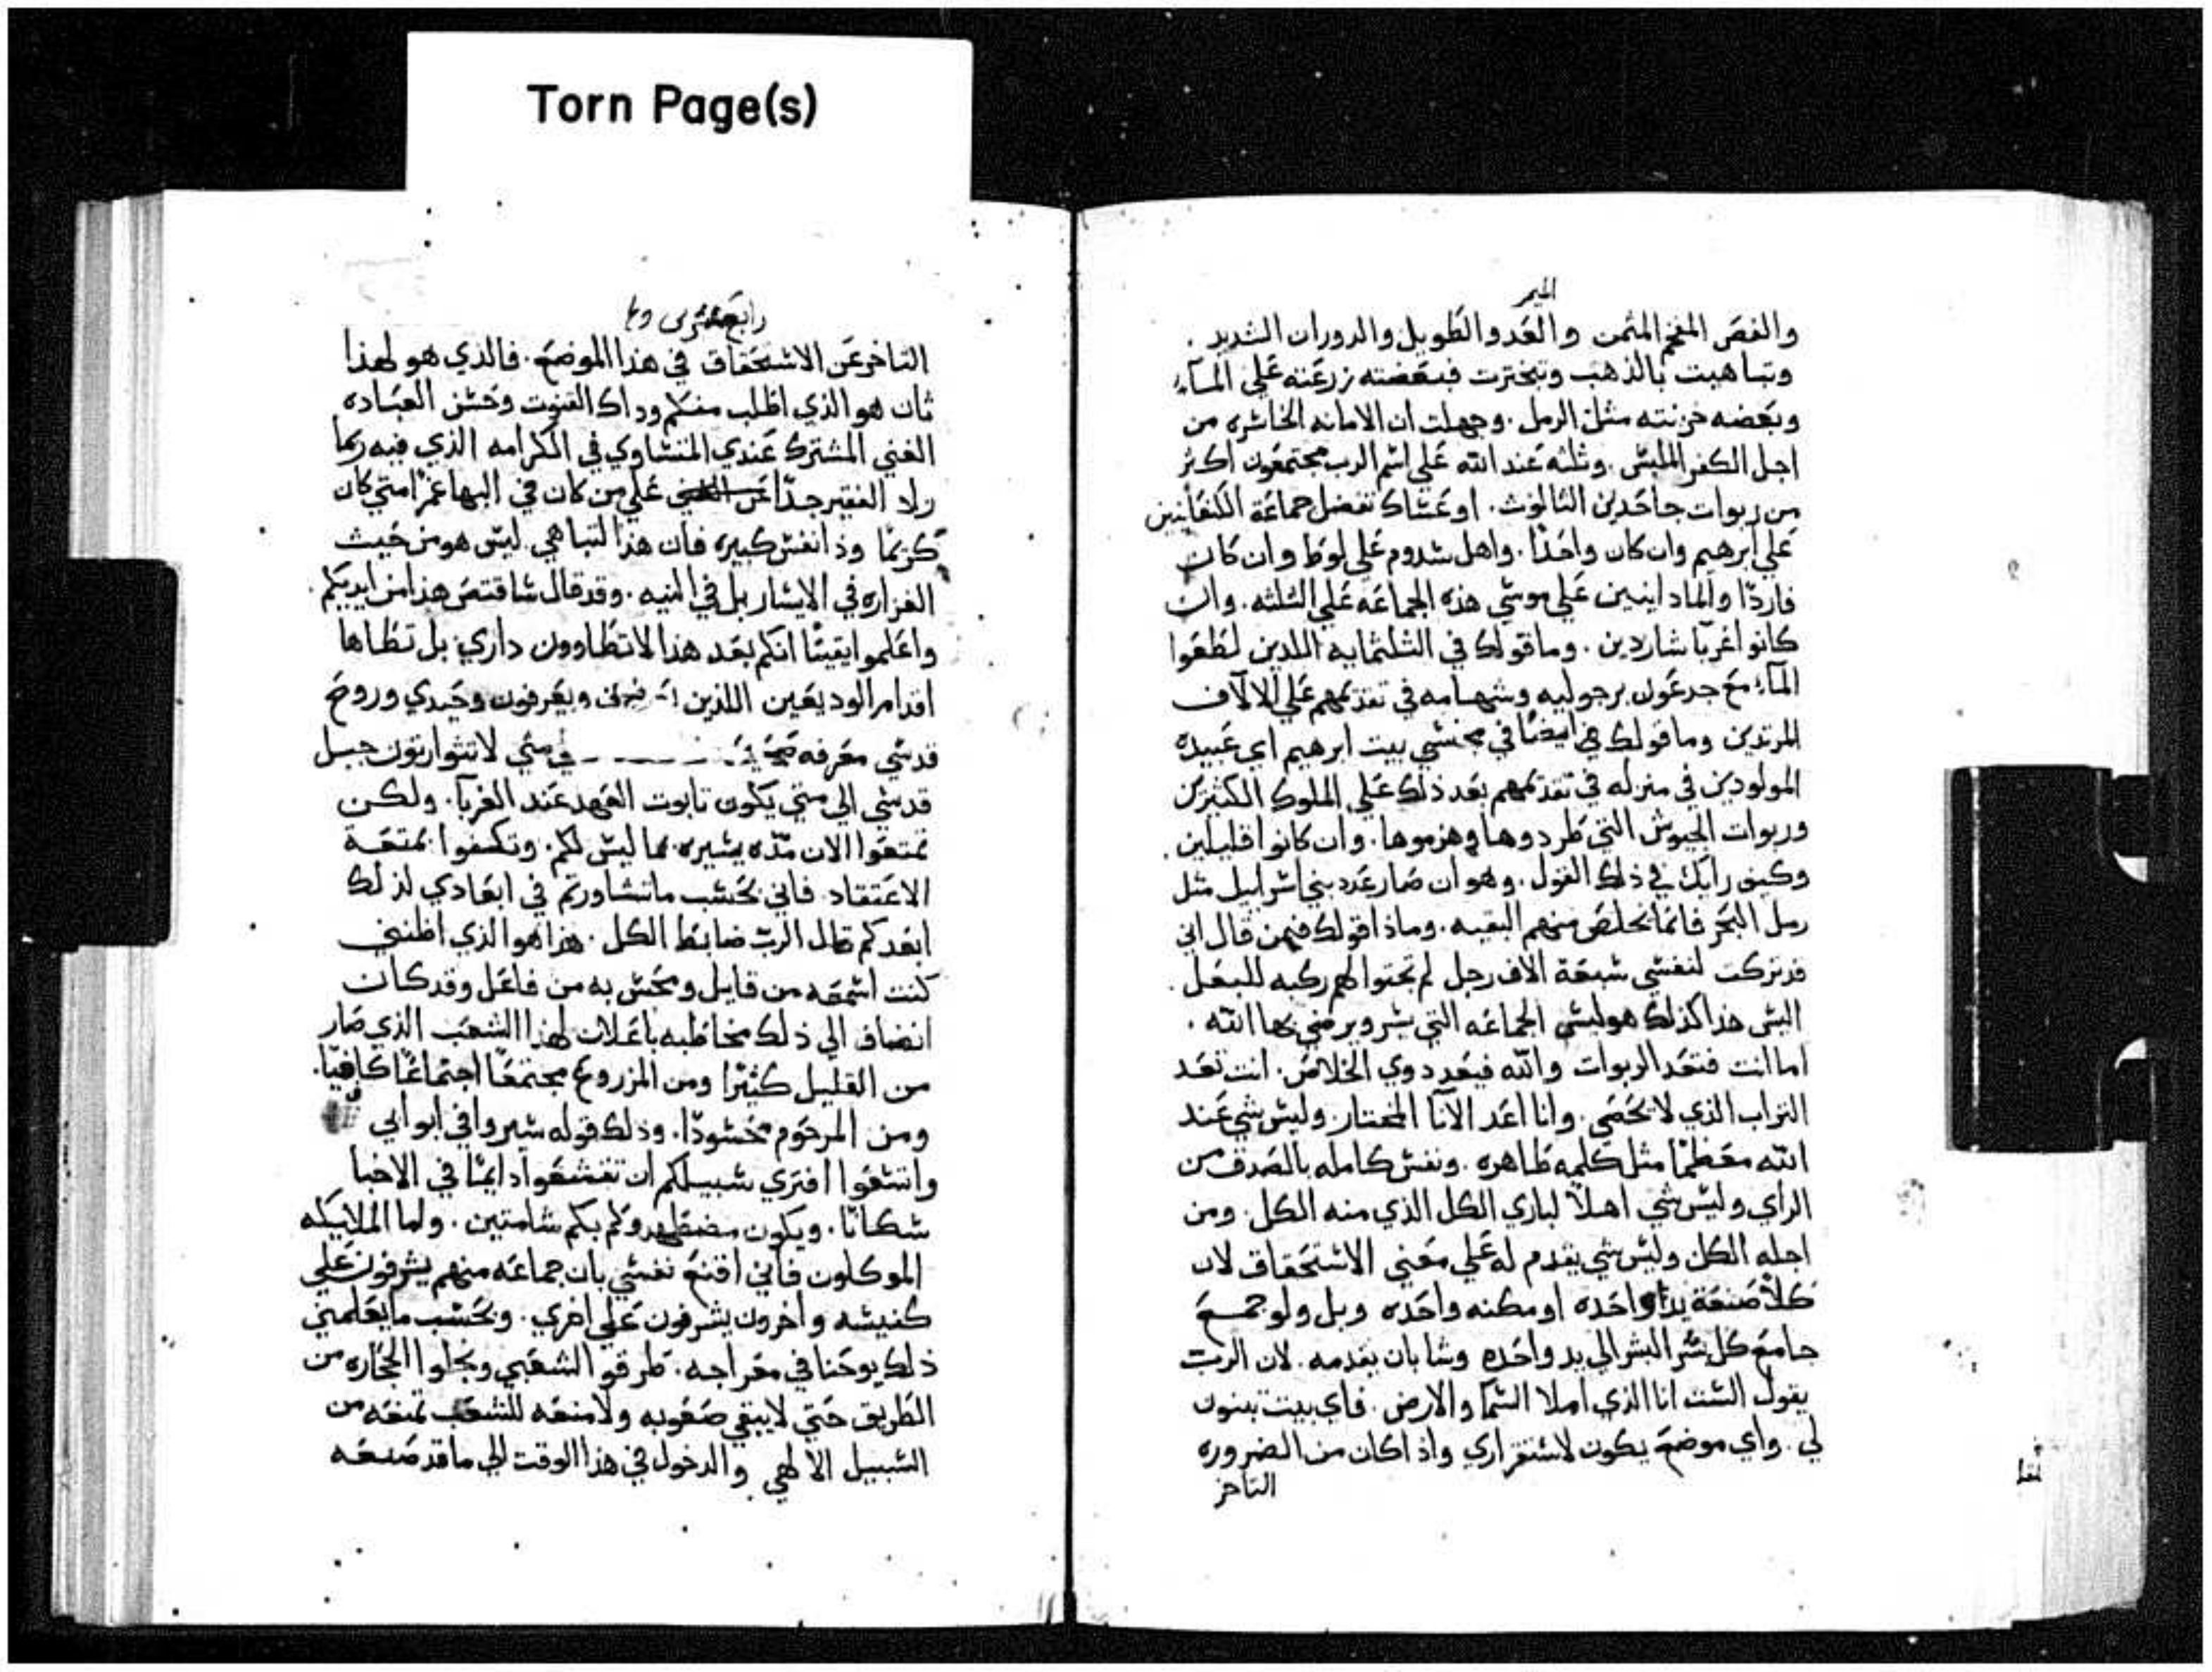 Torn Page(s)
الميمر
والفص المفخم المثمن والعدو الطويل والدوران الشديد.
وتباهيت بالذهب وتبخترت فبعضته زرعته علي الماء
وبعضه خزنته مثل الرمل. وجهلت ان الامانه الخاسره من
اجل الكفر الملبس. وثلثه عند الله علي اسم الرب مجتمعون اكثر
من ربوات جاحدين الثالوث. او عساك تفضل جماعة الكنعانيين
علي ابرهيم وان كان واحدًا. واهل سدوم علي لوط وان كان
فاردًا والماداينيين علي موسي هذه الجماعه علي الثلثه. وان
كانوا غربا شاردين. وما قولك في الثلثمايه اللدين لطعوا
الماء مع جدعون برجوليه وشهامه في تقديمهم علي الالاف
المرتدين وما قولك هي ايضًا في مخنسي بيت ابرهيم اي عبيده
المولودين في منزله في تقديمهم بعد ذلك علي الملوك الكثيرين
وربوات الجيوش التي طردوها وهزموها. وان كانوا قليلين.
وكيف رايك في ذلك القول. وهو ان صار عدد بني اسراييل مثل
رمل البحر فانما تخلص منهم البقيه. وماذا قولك فيمن قال اني
قد تركت لنفسي سبعة الاف رجل لم تحنوا لهم ركبه للبعل.
اليس هذا كذلك هو ليس الجماعه التي يسر ويرضي بها الله.
اما انت فتعد الربوات والله فيعد دوي الخلاص. انت تعد
التراب الذي لا يحصي. وانا اعد الانا المختار. وليس شي عند
الله معظمًا مثل كلمه طاهره. ونفس كامله بالصدق من
الراي وليس شي اهلاً لباري الكل الذي منه الكل. ومن
اجله الكل وليس شي يقدم له علي معني الاستحقاق لان
كلا صنعة يد واحده او مكنه واحده وبل ولو جمع
جامع كل سر البشر الي يد واحده وشا بان يقدمه. لان الرب
يقول الست انا الذي املا السما والارض. فاي بيت تبنون
لي. واي موضع يكون لاستقراري واذ اكان من الضروره
التاخر
رابع عشر
التاخر عن الاستحقاق في هذا الموضع. فالذي هو لهذا
ثان هو الذي اطلب منكم وداك القنوت وحسن العباده
الغني المشترك عندي المتساوي في الكرامه الذي فيه ربما
زاد الفقير جدًا علي من كان في البها غمرا متي كان
كريمًا وذا نفس كبيره فان هذا التباهي ليس هو من حيث
الغزاره في الايسار بل في النيه. وقد قال ساقتص هذا من ايديكم.
واعلموا يقينًا انكم بعد هذا لا تطاوون داري بل تطاها
اقدام الوديعين اللذين ويعرفون وحيدي وروح
قدسي معرفه متي لا تتوارتون جبل
قدسي الي متي يكون تابوت العهد عند الغربا. ولكن
تمتعوا الان مده يسيره بما ليس لكم. وتكنفوا بمتعة
الاعتقاد. فاني بحسب ما تشاورتم في ابعادي لذلك
ابعدكم قال الرب ضابط الكل. هذا هو الذي اظنني
كنت اسمعه من قايل ومحس به من فاعل وقد كان
انضاف الي ذلك مخاطبه باعلان لهذا الشعب الذي صار
من القليل كثيرًا ومن المزروع مجتمعًا اجتماعًا كافيًا.
ومن المرحوم محسودًا. وذلك قوله سيروا في ابوابي
واتسعوا افتري سبيلكم ان تفسقوا دايمًا في الاخبا
سكانًا. ويكون مضطهدوكم بكم شامتين. ولما الملايكه
الموكلون فاني اقنع نفسي بان جماعه منهم يشرفون علي
كنيسه واخرون يشرفون علي اخري. وبحسب ما يعلمني
ذلك يوحنا في معراجه. طرقوا لشعبي ونحلوا الحجاره من
الطريق حتي لا يبقي صعوبه ولا منعه للشعب تمنعه من
السبيل الالهي والدخول في هذا الوقت الي ما قد صنعه